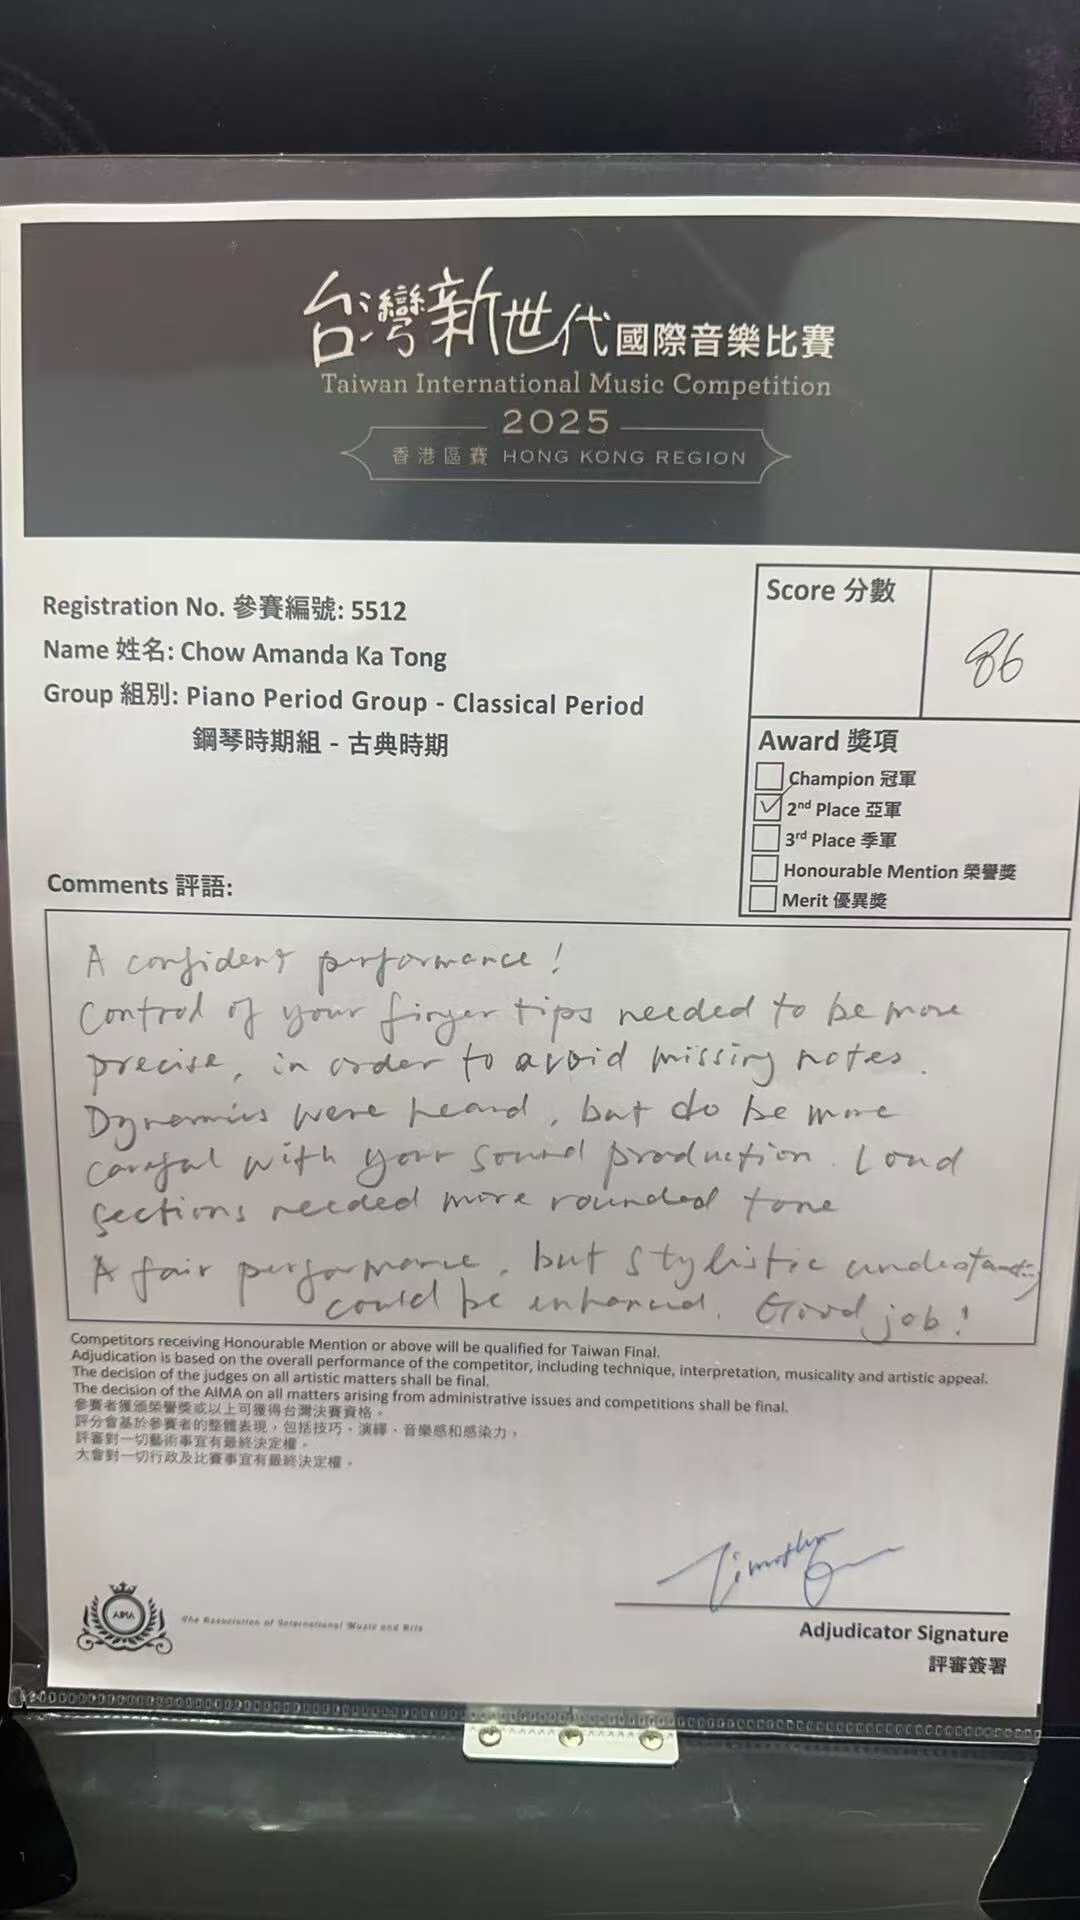 台灣新世代國際音樂比賽
Taiwan International Music Competition
2025
香港區賽 HONG KONG REGION
Registration No. 參賽編號: 5512
Name 姓名: Chow Amanda Ka Tong
Group 組別: Piano Period Group - Classical Period
鋼琴時期組 - 古典時期
Score 分數
86
Award 獎項
Champion 冠軍
2nd Place 亞軍
3rd Place 季軍
Honourable Mention 榮譽獎
Merit 優異獎
Comments 評語:
A confident performance!
Control of your finger tips needed to be more
precise, in order to avoid missing notes.
Dynamics were heard, but do be more
careful with your sound production. Loud
sections needed more rounded tone
A fair performance, but stylistic understanding
could be enhanced. Good job!
Competitors receiving Honourable Mention or above will be qualified for Taiwan Final.
Adjudication is based on the overall performance of the competitor, including technique, interpretation, musicality and artistic appeal.
The decision of the judges on all artistic matters shall be final.
The decision of the AIMA on all matters arising from administrative issues and competitions shall be final.
參賽者獲頒榮譽獎或以上可獲得台灣決賽資格。
評分會基於參賽者的整體表現，包括技巧、演繹、音樂感和感染力，
評審對一切藝術事宜有最終決定權。
大會對一切行政及比賽事宜有最終決定權。
Timothy
AIMA
The Association of International Music and Arts
Adjudicator Signature
評審簽署